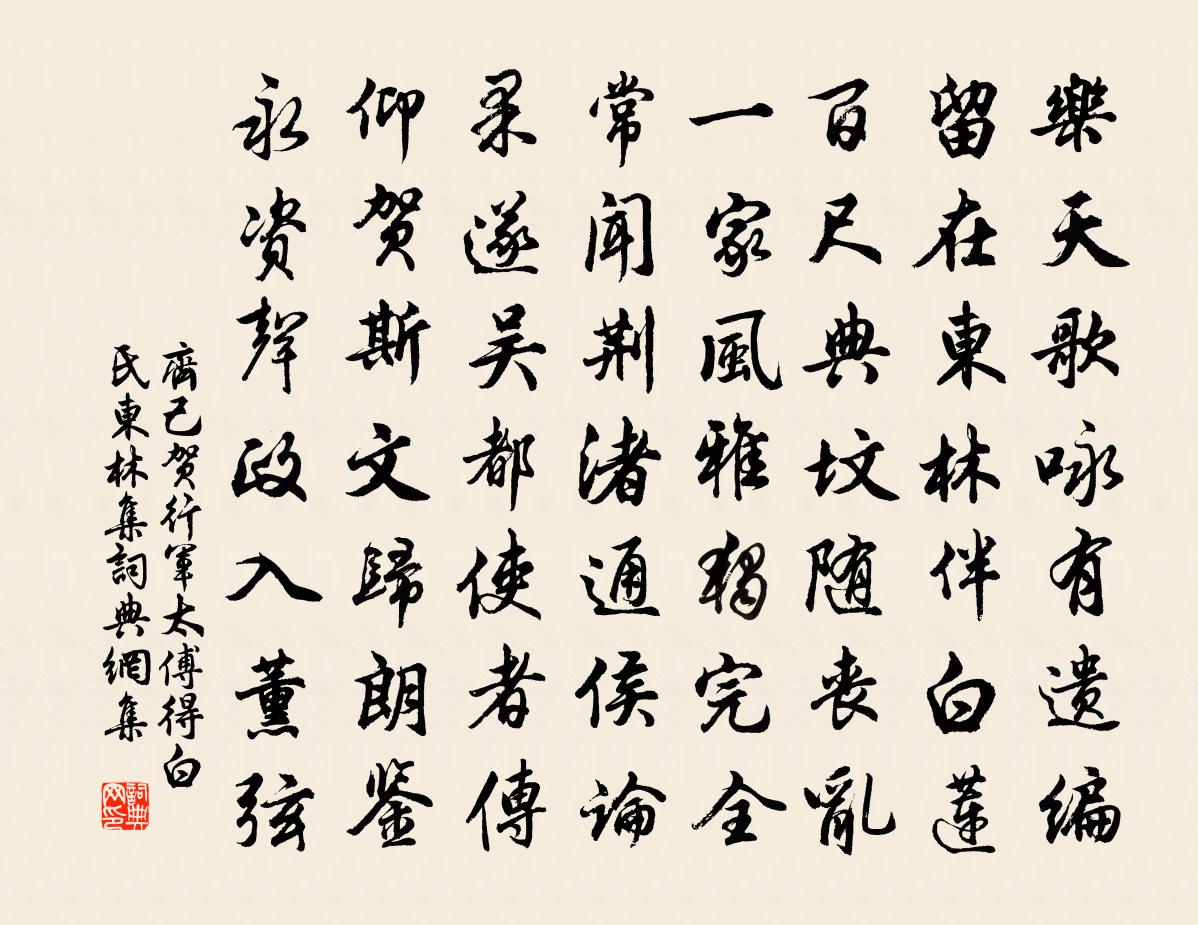 樂天歌咏有遺編
留在東林伴白蓮
百尺典坟随喪亂
一家風雅獨完全
常聞荆渚通侯論
果遂吴都使者傳
仰賀斯文歸朗鉴
永資聲政入薰弦
齊己賀行軍太傅得白
氏東林集詞典網集
詞典
网印